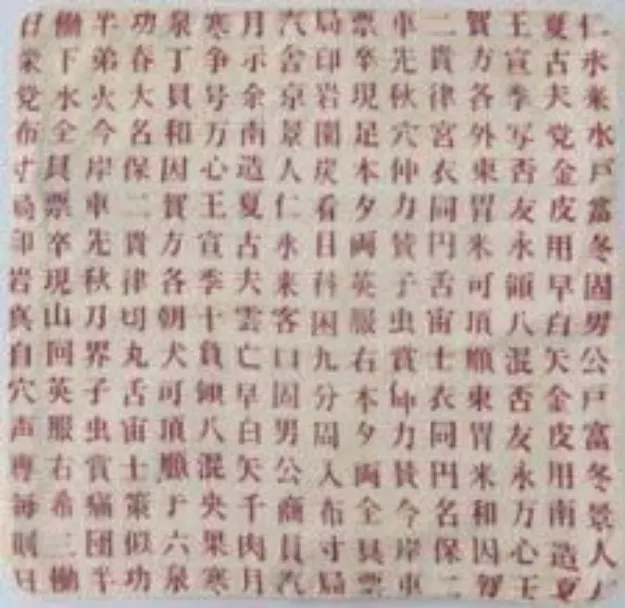 働半功泉寒月汽局票車二賀王夏仁
栄下弟春丁争示舎印卒先貴方宣古氷
党水火大貝号余京岩現秋律各季夫米
布全今名和万南景園足穴宮外写党水
寸具岸保因心造人炭本仲衣東否金戸
局票車二賀王夏仁看夕力同胃友皮富
印卒先貴方宣古氷目両賛円米永用冬
岩現秋律各季夫来科英子舌可領早固
真山刀切朝十雲客困服虫宙頂八白男
自回界丸犬負亡口九右賞士順混矢公
穴英子舌可領早固分本仲衣東否金戸
声服虫宙頂八白男周夕力同胃友皮富
専右賞士順混矢公入両賛円米永用冬
毎希痛策于央千商布全今名和万南景
則二団似六果肉員寸具岸保因心造人
働半功泉寒月汽局票車二賀王夏